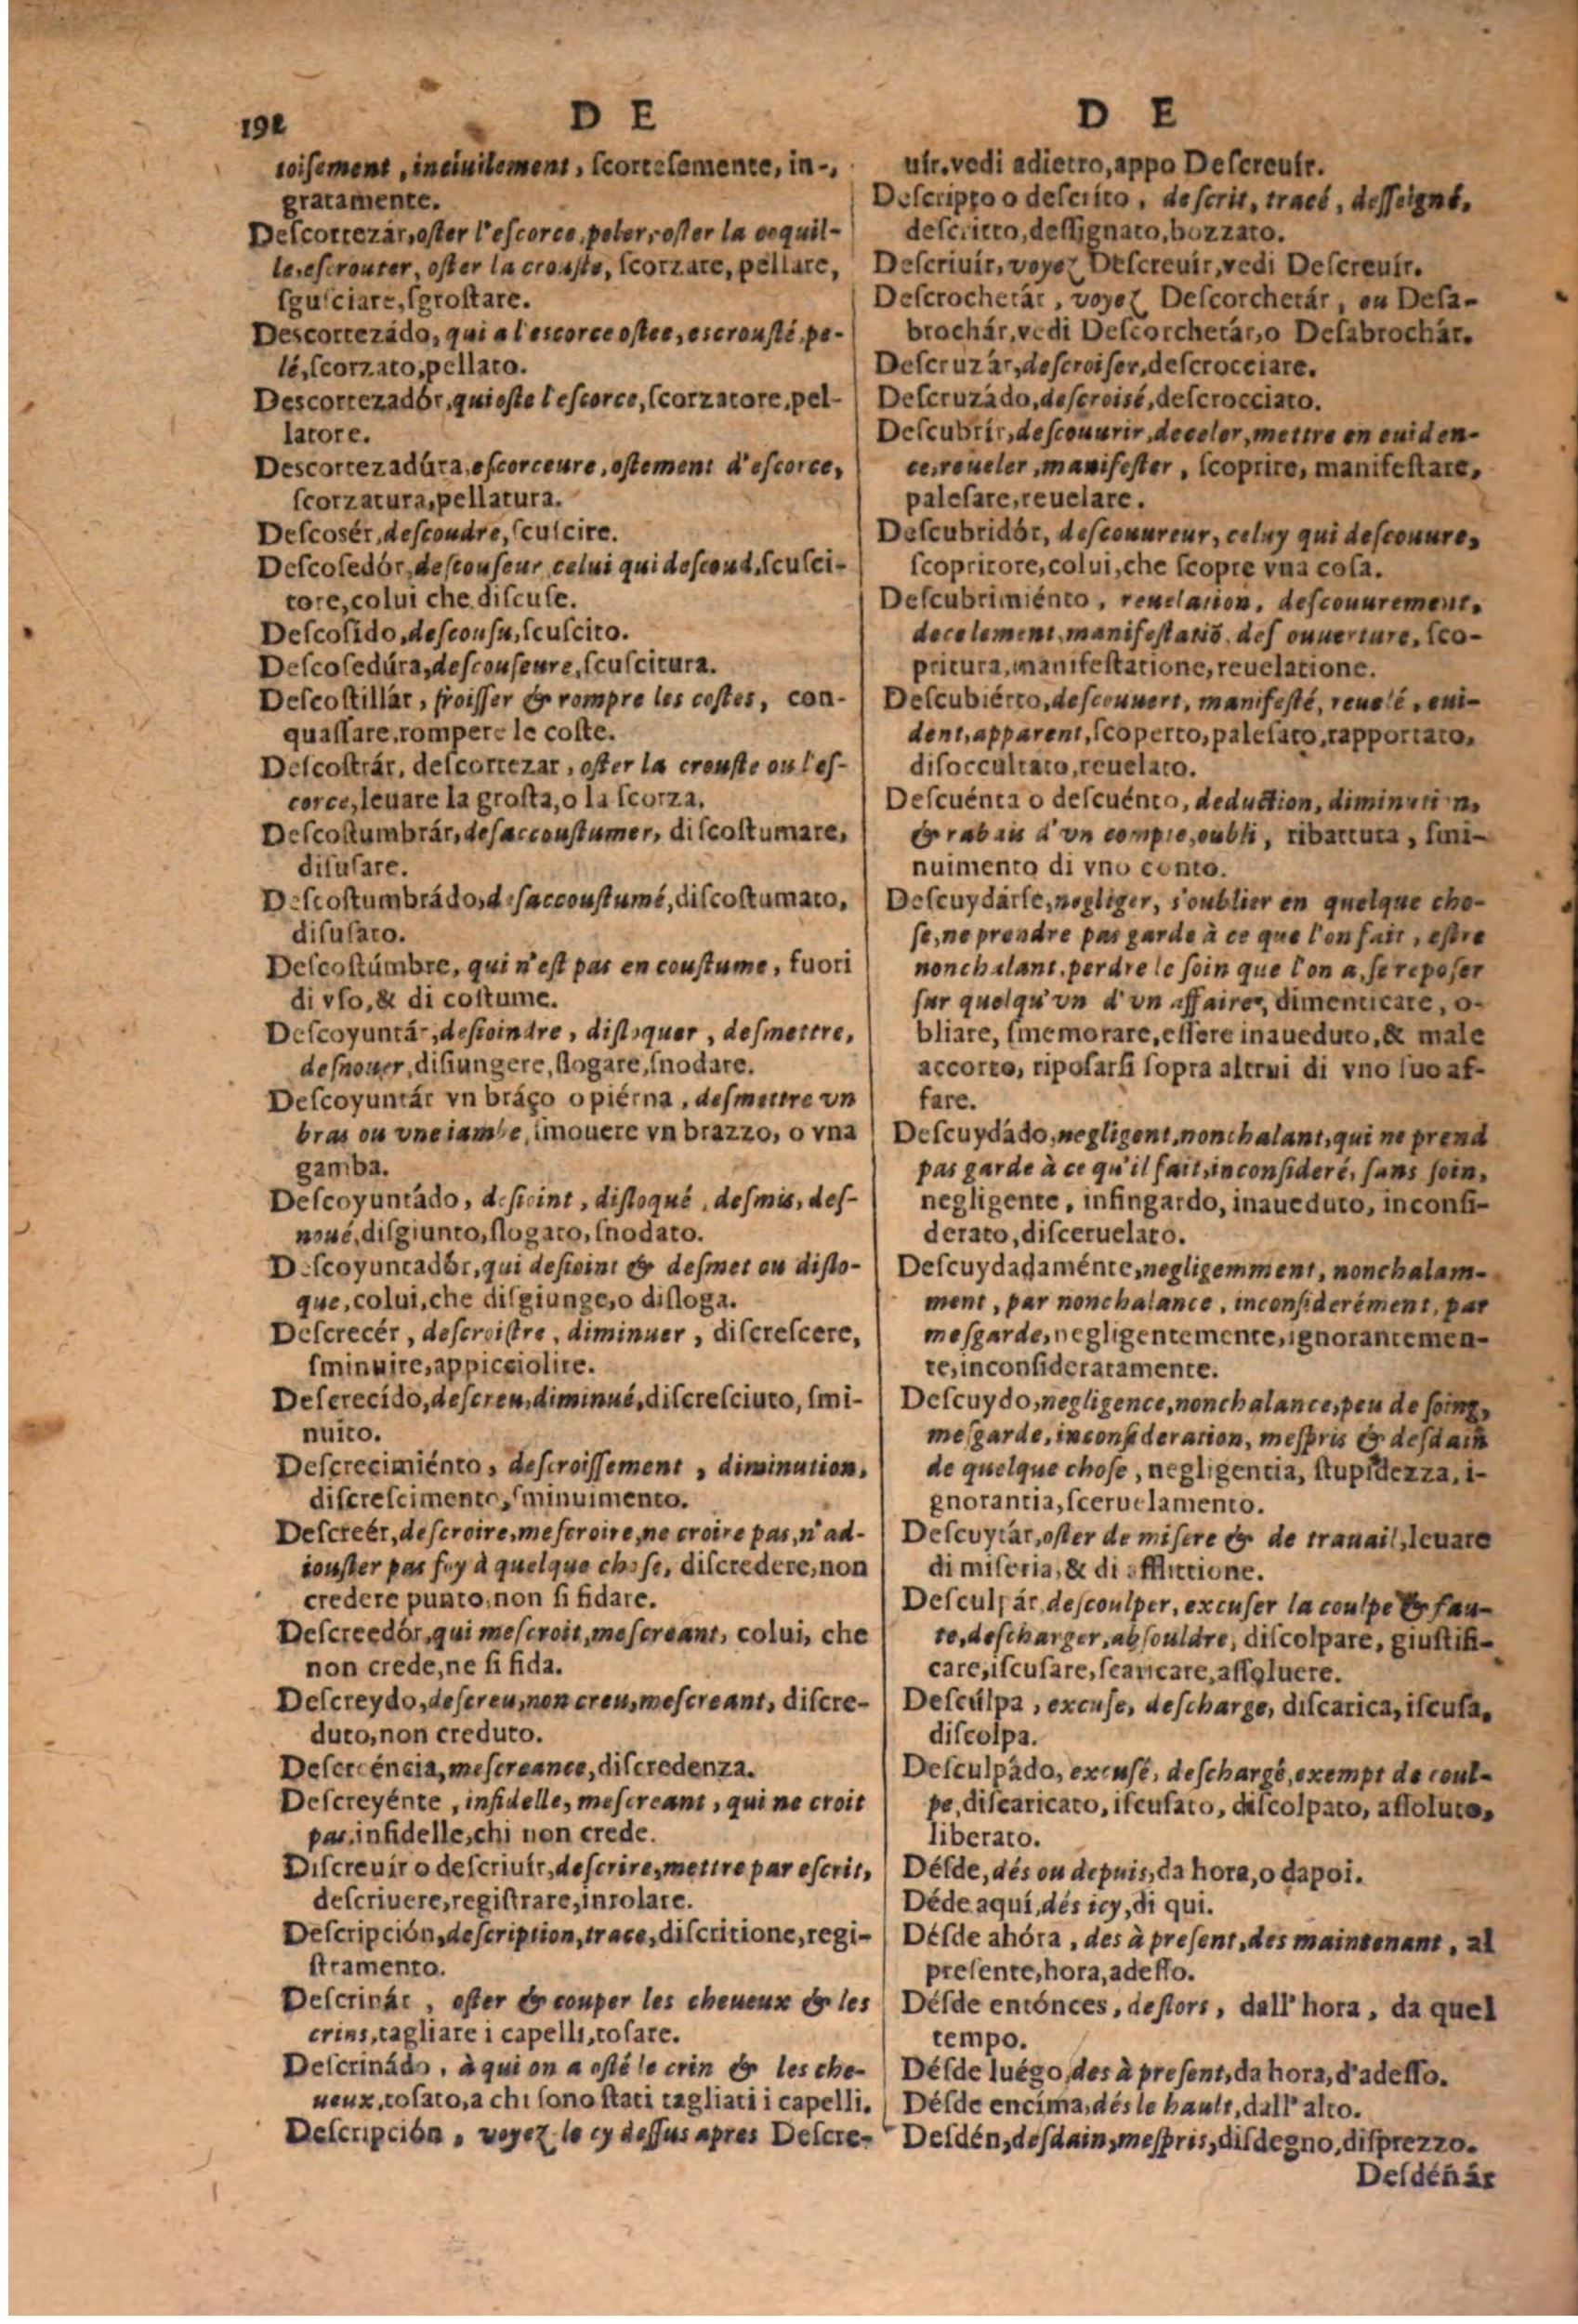 192
D E
toisement, inciuilement, ſcorteſemente, in-
gratamente.
Deſcortezár, oster l'eſcorce, peler, oster la coquil-
le, eſcrouter, oster la crouste, ſcorzare, pellare,
ſguſciare, ſgroſtare.
Descortezádo, qui a l'escorce ostee, escrousté, pe-
lé, ſcorzato, pellato.
Descortezadór, qui oste l'eſcorce, ſcorzatore, pel-
latore.
Descortezadúra, eſcorceure, ostement d'eſcorce,
ſcorzatura, pellatura.
Deſcosér, deſcoudre, ſcuſcire.
Deſcoſedór, deſcouſeur, celui qui deſcoud, ſcuſci-
tore, colui che diſcuſe.
Deſcoſido, deſcouſu, ſcuſcito.
Deſcoſedúra, deſcouſeure, ſcuſcitura.
Deſcoſtillár, froiſſer & rompre les coſtes, con-
quaſſare, rompere le coſte.
Deſcoſtrár, deſcortezar, oſter la crouſte ou l'eſ-
corce, leuare la groſta, o la ſcorza.
Deſcoſtumbrár, deſaccouſtumer, diſcoſtumare,
diſuſare.
Deſcoſtumbrádo, deſaccouſtumé, diſcoſtumato,
diſuſato.
Deſcoſtúmbre, qui n'eſt pas en couſtume, fuori
di vſo, & di coſtume.
Deſcoyuntár, deſioindre, diſloquer, deſmettre,
deſnouer, diſiungere, ſlogare, ſnodare.
Deſcoyuntár vn bráço o piérna, deſmettre vn
bras ou vne iambe, ſmouere vn brazzo, o vna
gamba.
Deſcoyuntádo, deſioint, diſloqué, deſmis, deſ-
noué, diſgiunto, ſlogato, ſnodato.
Deſcoyuntadór, qui deſioint & deſmet ou diſlo-
que, colui, che diſgiunge, o diſloga.
Deſcrecér, deſcroiſtre, diminuer, diſcreſcere,
ſminuire, appicciolire.
Deſcrecído, deſcreu, diminué, diſcreſciuto, ſmi-
nuito.
Deſcrecimiénto, deſcroiſſement, diminution,
diſcreſcimento, ſminuimento.
Deſcreér, deſcroire, meſcroire, ne croire pas, n'ad-
iouſter pas foy à quelque choſe, diſcredere, non
credere punto, non ſi fidare.
Deſcreedór, qui meſcroit, meſcreant, colui, che
non crede, ne ſi fida.
Deſcreydo, deſcreu, non creu, meſcreant, diſcre-
duto, non creduto.
Deſcreéncia, meſcreance, diſcredenza.
Deſcreyénte, infidelle, meſcreant, qui ne croit
pas, infidelle, chi non crede.
Diſcreuír o deſcriuír, deſcrire, mettre par eſcrit,
deſcriuere, regiſtrare, inrolare.
Deſcripción, deſcription, trace, diſcritione, regi-
ſtramento.
Deſcrinár, oſter & couper les cheueux & les
crins, tagliare i capelli, toſare.
Deſcrinádo, à qui on a oſté le crin & les che-
ueux, toſato, a chi ſono ſtati tagliati i capelli.
Deſcripción, voyez le cy deſſus apres Deſcre-
D E
uír. vedi adietro, appo Deſcreuír.
Deſcripto o deſcrito, deſcrit, tracé, deſſeigné,
deſcritto, deſſignato, bozzato.
Deſcriuír, voyez Deſcreuír, vedi Deſcreuír.
Deſcrochetár, voyez Deſcorchetár, ou Deſa-
brochár, vedi Deſcorchetár, o Deſabrochár.
Deſcruzár, deſcroiſer, deſcrocciare.
Deſcruzádo, deſcroiſé, deſcrocciato.
Deſcubrír, deſcouurir, deceler, mettre en euiden-
ce, reueler, manifeſter, ſcoprire, manifeſtare,
paleſare, reuelare.
Deſcubridór, deſcouureur, celuy qui deſcouure,
ſcopritore, colui, che ſcopre vna coſa.
Deſcubrimiénto, reuelation, deſcouurement,
decelement, manifeſtatiõ, deſouuerture, ſco-
pritura, manifeſtatione, reuelatione.
Deſcubiérto, deſcouuert, manifeſté, reuelé, eui-
dent, apparent, ſcoperto, paleſato, rapportato,
diſoccultato, reuelato.
Deſcuénta o deſcuénto, deduction, diminution,
& rabais d'vn compte, oubli, ribattuta, ſmi-
nuimento di vno conto.
Deſcuydárſe, negliger, s'oublier en quelque cho-
ſe, ne prendre pas garde à ce que l'on fait, eſtre
nonchalant, perdre le ſoin que l'on a, ſe repoſer
ſur quelqu'vn d'vn affaire, dimenticare, o-
bliare, ſmemorare, eſſere inaueduto, & male
accorto, ripoſarſi ſopra altrui di vno ſuo af-
fare.
Deſcuydádo, negligent, nonchalant, qui ne prend
pas garde à ce qu'il fait, inconſideré, ſans ſoin,
negligente, infingardo, inaueduto, inconſi-
derato, diſceruelato.
Deſcuydadaménte, negligemment, nonchalam-
ment, par nonchalance, inconſiderément, par
meſgarde, negligentemente, ignorantemen-
te, inconſideratamente.
Deſcuydo, negligence, nonchalance, peu de ſoing,
meſgarde, inconſideration, meſpris & deſdain
de quelque choſe, negligentia, ſtupidezza, i-
gnorantia, ſceruelamento.
Deſcuytár, oſter de miſere & de trauail, leuare
di miſeria, & di afflittione.
Deſculpár, deſcoulper, excuſer la coulpe & fau-
te, deſcharger, abſouldre, diſcolpare, giuſtifi-
care, iſcuſare, ſcaricare, aſſoluere.
Deſcúlpa, excuſe, deſcharge, diſcarica, iſcuſa,
diſcolpa.
Deſculpádo, excuſé, deſchargé, exempt de coul-
pe, diſcaricato, iſcuſato, diſcolpato, aſſoluto,
liberato.
Déſde, dés ou depuis, da hora, o dapoi.
Déde aquí, dés icy, di qui.
Déſde ahóra, des à preſent, des maintenant, al
preſente, hora, adeſſo.
Déſde entónces, deſlors, dall'hora, da quel
tempo.
Déſde luégo, des à preſent, da hora, d'adeſſo.
Déſde encíma, dés le hault, dall'alto.
Deſdén, deſdain, meſpris, diſdegno, diſprezzo.
Deſdéñár